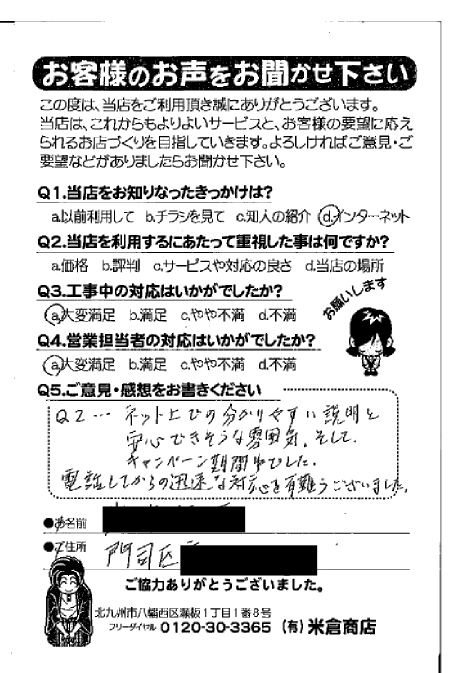 お客様のお声をお聞かせ下さい
この度は、当店をご利用頂き誠にありがとうございます。
当店は、これからもよりよいサービスと、お客様の要望に応え
られるお店づくりを目指していきます。よろしければご意見・ご
要望などがありましたらお聞かせ下さい。
Q1.当店をお知りなったきっかけは?
a.以前利用して b.チラシを見て c.知人の紹介 d.インターネット
Q2.当店を利用するにあたって重視した事は何ですか?
a.価格 b.評判 c.サービスや対応の良さ d.当店の場所
Q3.工事中の対応はいかがでしたか?
お願いします
a.大変満足 b.満足 c.やや不満 d.不満
Q4.営業担当者の対応はいかがでしたか?
a.大変満足 b.満足 c.やや不満 d.不満
Q5.ご意見・感想をお書きください
Q2… ネット上での分かりやすい説明と
安心できそうな雰囲気。そして
キャンペーン期間中でした。
電話してからの迅速な対応を有難うございました。
●お名前
●ご住所 門司区
ご協力ありがとうございました。
北九州市八幡西区瀬板1丁目1番8号
フリーダイヤル 0120-30-3365 (有)米倉商店